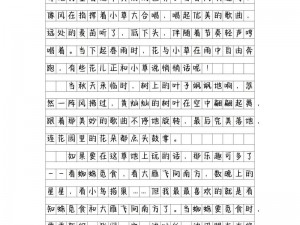 像风在指挥着小草大合唱。唱起优美的歌曲,
远处的麦苗也低下头,伴随着节奏轻声哼
唱着。当下起春雨时,花与小草在雨中自由奔
跑,有些花儿正和小草说悄悄话呢!
当秋天来临时,树上的叶子飒飒地响,忽
然一阵风拂过,黄灿灿的树叶在空中翩翩起舞,
跟着那美妙的歌曲不停地旋转,最后完美落地,
连花园里的花朵都点头鼓掌。
如果要在这草地上玩的话,那乐趣可多了
--看蜘蛛觅食,看大雁飞向南方,数晚上的
星星,看小鸟捣巢……但我最最喜欢的就是看
知蜘蛛觅食和大雁飞向南方了。当蜘蛛要觅食时,